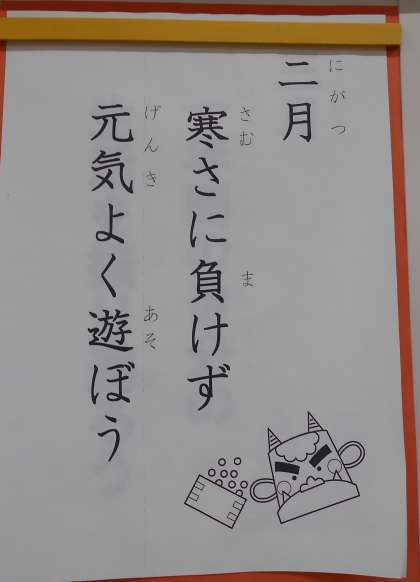 二月
にがつ
寒さに負けず
さむ
ま
元気よく遊ぼう
げんき
あそ